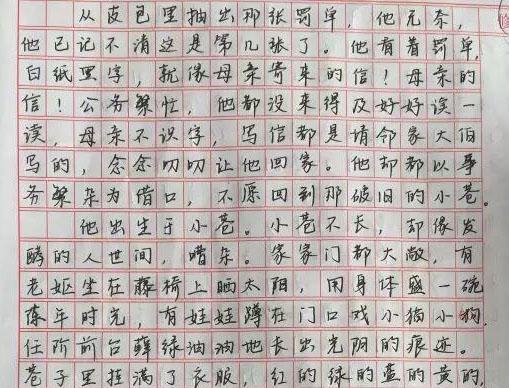 从皮包里抽出那张罚单，他无奈，
他已记不清这是第几张了。他看着罚单，
白纸黑字，就像母亲寄来的信！母亲的
信！公务繁忙，他都没来得及好好读一
读，母亲不识字，写信都是请邻家大伯
写的，念念叨叨让他回家。他却都以事
务繁杂为借口，不愿回到那破旧的小巷。
他出生于小巷。小巷不长，却像发
酵的人世间，嘈杂。家家门都大敞，有
老妪坐在藤椅上晒太阳，用身体盛一碗
陈年时光，有娃娃蹲在门口戏小猫小狗，
任阶前台藓绿油油地长出光阴的痕迹。
巷子里挂满了衣服，红的绿的蓝的黄的